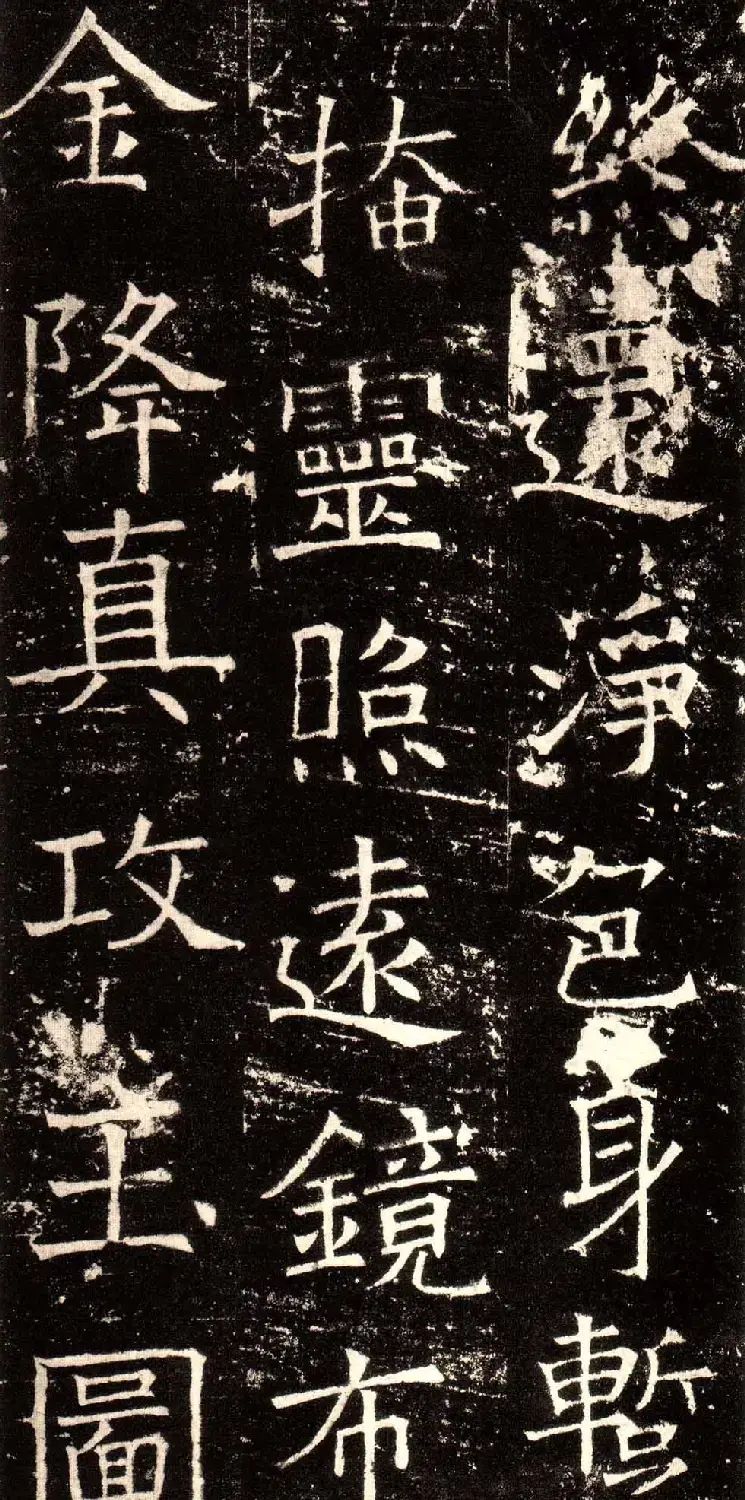 終還淨色身暫
掩靈照遠鏡布
金降真攻玉圖